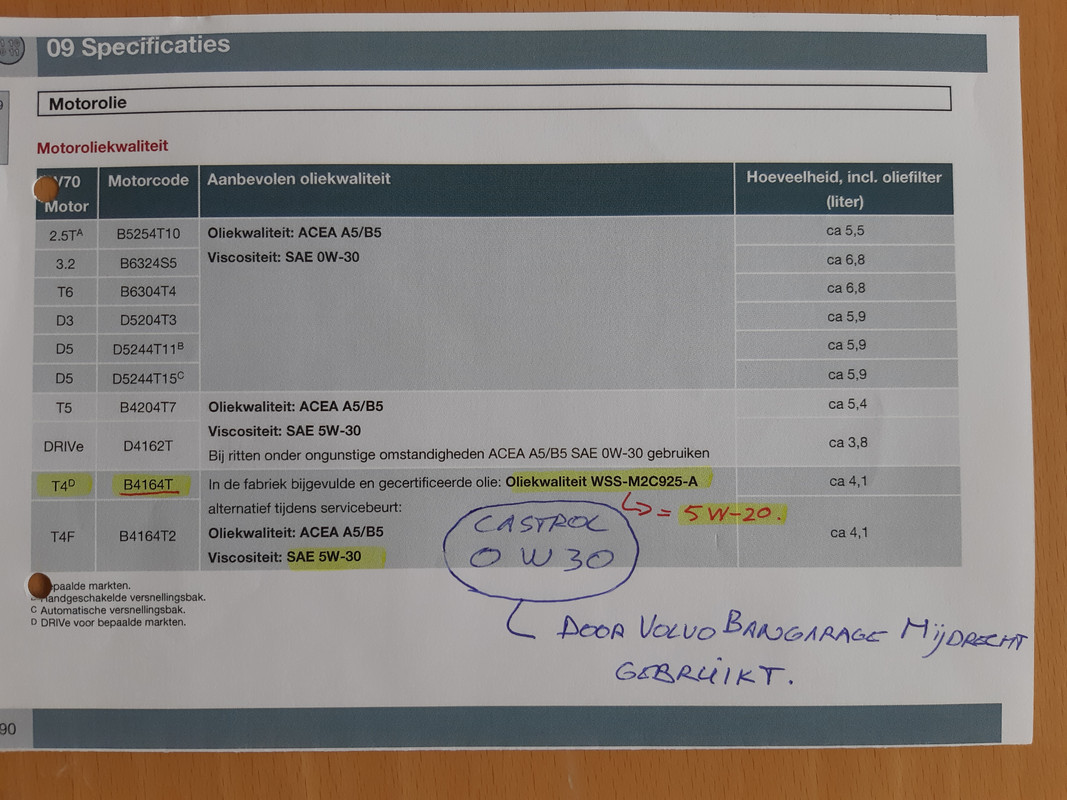 09 Specificaties
Motorolie
Motoroliekwaliteit
V70 Motor Motorcode Aanbevolen oliekwaliteit Hoeveelheid, incl. oliefilter (liter)
2.5Tᴬ B5254T10 Oliekwaliteit: ACEA A5/B5 ca 5,5
3.2 B6324S5 Viscositeit: SAE 0W-30 ca 6,8
T6 B6304T4 ca 6,8
D3 D5204T3 ca 5,9
D5 D5244T11ᴮ ca 5,9
D5 D5244T15ᶜ ca 5,9
T5 B4204T7 Oliekwaliteit: ACEA A5/B5 ca 5,4
Viscositeit: SAE 5W-30
DRIVe D4162T ca 3,8
Bij ritten onder ongunstige omstandigheden ACEA A5/B5 SAE 0W-30 gebruiken
T4ᴰ B4164T In de fabriek bijgevulde en gecertificeerde olie: Oliekwaliteit WSS-M2C925-A ca 4,1
alternatief tijdens servicebeurt:
= 5W-20.
T4F B4164T2 Oliekwaliteit: ACEA A5/B5 ca 4,1
Viscositeit: SAE 5W-30
CASTROL
0W30
paalde markten.
Handgeschakelde versnellingsbak.
C Automatische versnellingsbak.
D DRIVe voor bepaalde markten.
DOOR VOLVO BANGARAGE MIJDRECHT
GEBRUIKT.
90